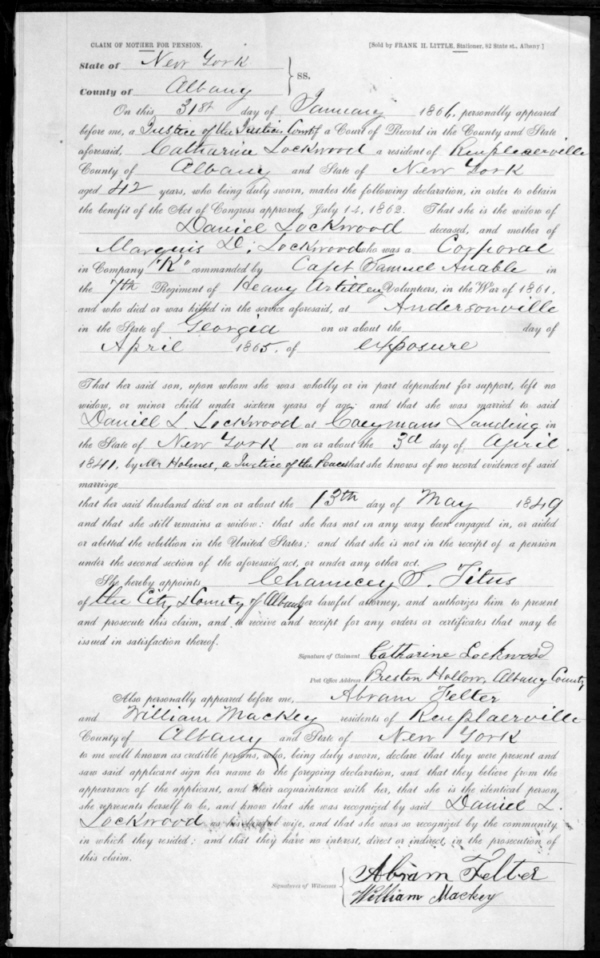 CLAIM OF MOTHER FOR PENSION. [Sold by FRANK H. LITTLE, Stationer, 82 State st., Albany]
State of New York
County of Albany } SS.
On this 31st day of January 1866, personally appeared
before me, a Justice of the Justice Court of a Court of Record in the County and State
aforesaid, Catharine Lockwood a resident of Renselaerville
County of Albany and State of New York
aged 42 years, who being duly sworn, makes the following declaration, in order to obtain
the benefit of the Act of Congress approved July 14, 1862. That she is the widow of
Daniel Lockwood deceased, and mother of
Marquis D. Lockwood who was a Corporal
in Company "K" commanded by Capt Samuel Anable in
the 7th Regiment of Heavy Artillery Volunteers, in the War of 1861,
and who died or was killed in the service aforesaid, at Andersonville
in the State of Georgia on or about the day of
April 1865, of exposure
That her said son, upon whom she was wholly or in part dependent for support, left no
widow, or minor child under sixteen years of age; and that she was married to said
Daniel L. Lockwood at Coeymans Landing in
the State of New York on or about the 3d day of April
1841, by Mr Holmes, a Justice of the Peace that she knows of no record evidence of said
marriage
that her said husband died on or about the 13th day of May 1849
and that she still remains a widow; that she has not in any way been engaged in, or aided
or abetted the rebellion in the United States; and that she is not in the receipt of a pension
under the second section of the aforesaid act, or under any other act.
She hereby appoints Chauncey S. Titus
of the City & County of Albany her lawful attorney, and authorizes him to present
and prosecute this claim, and to receive and receipt for any orders or certificates that may be
issued in satisfaction thereof.
Signature of Claimant Catharine Lockwood
Post Office Address Preston Hollow, Albany County
Also personally appeared before me, Abram Felter
and William Mackey residents of Renplaerville
County of Albany and State of New York
to me well known as credible persons, who, being duly sworn, declare that they were present and
saw said applicant sign her name to the foregoing declaration, and that they believe from the
appearance of the applicant, and their acquaintance with her, that she is the identical person
she represents herself to be, and know that she was recognized by said Daniel L.
Lockwood as his lawful wife, and that she was so recognized by the community
in which they resided; and that they have no interest, direct or indirect, in the prosecution of
this claim.
Signatures of Witnesses { Abram Felter
William Mackey